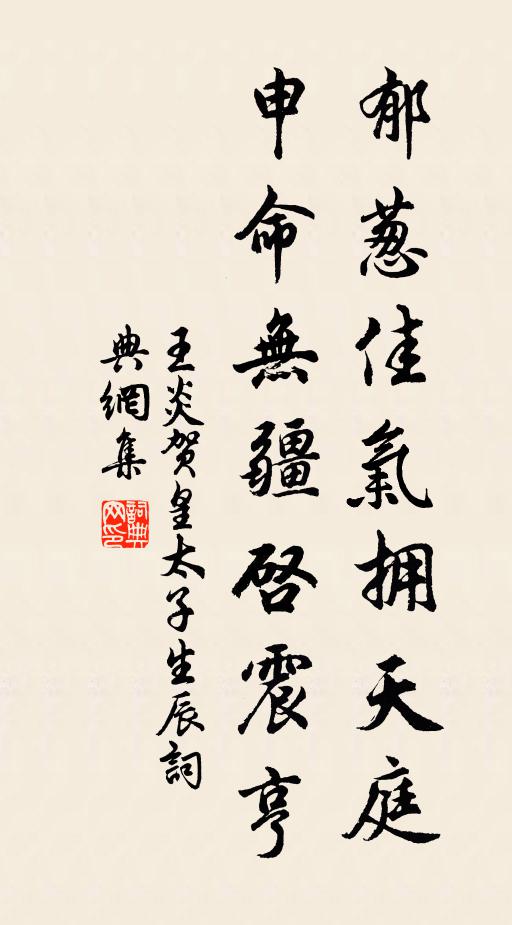 郁葱佳氣拥天庭
申命無疆启震亨
王炎贺皇太子生辰詞
典網集
詞典网印